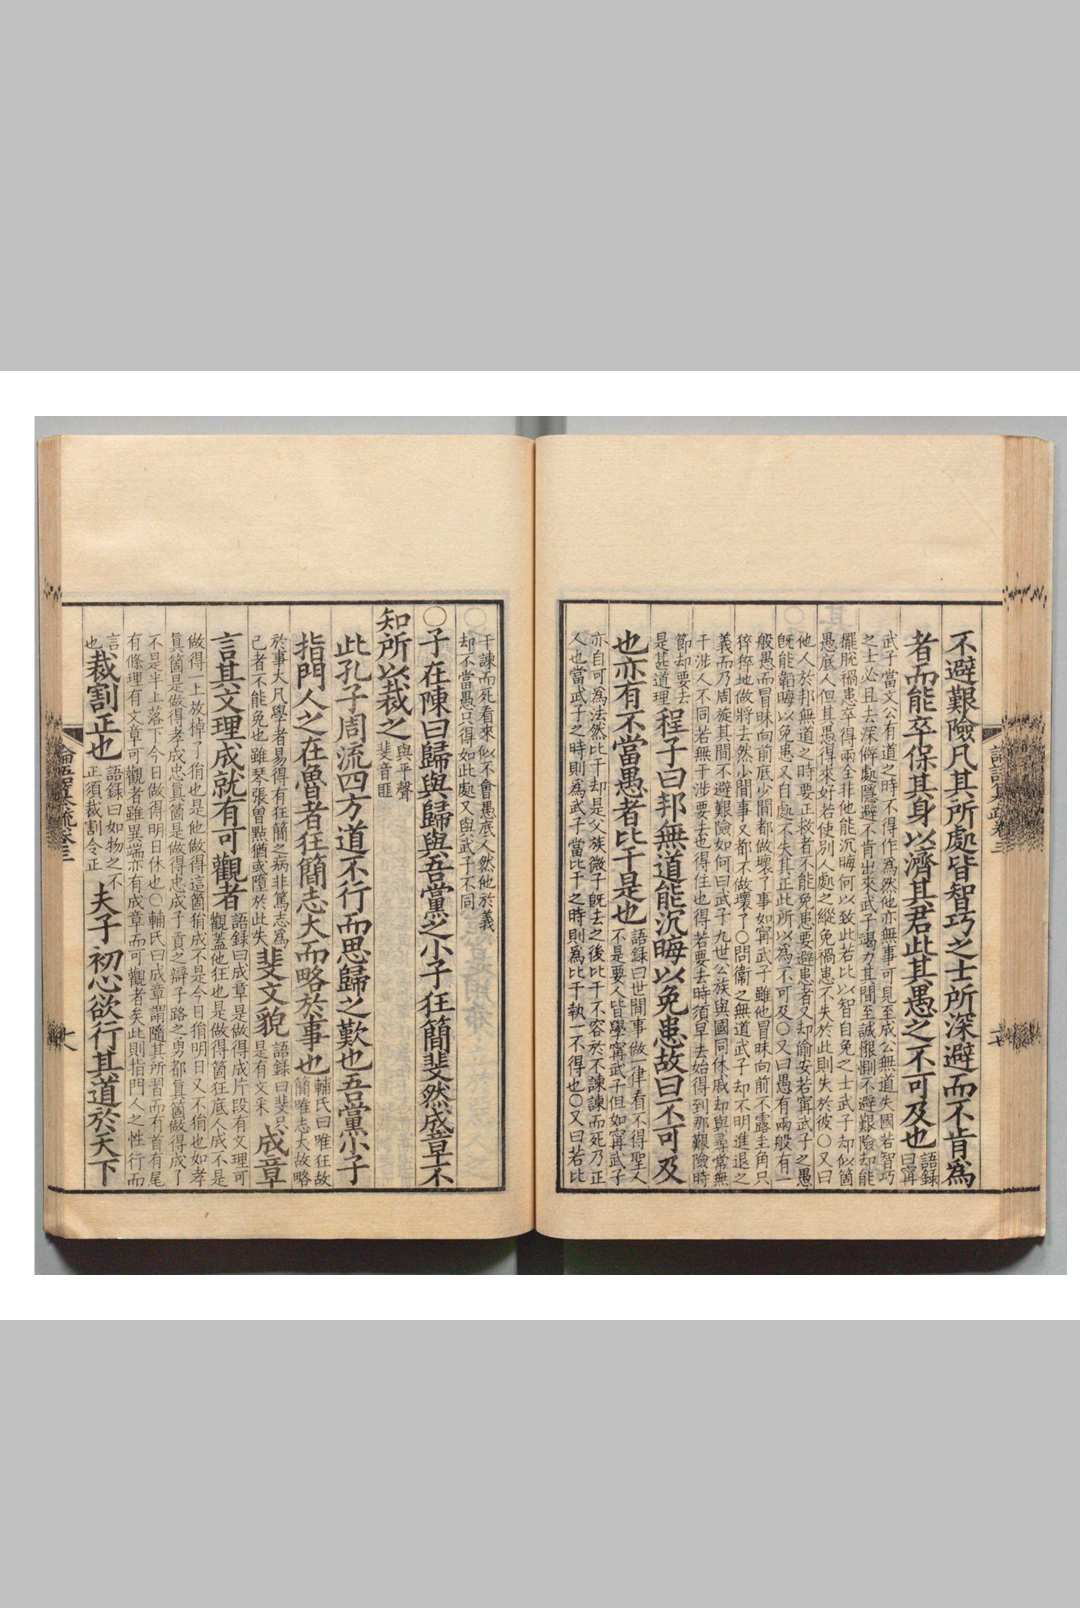 不避艱險凡其所處皆智巧之士所深避而不肯為
者而能卒保其身以濟其君此其愚之不可及也語錄曰甯
武子當文公有道之時不得作為然他亦無事可見至成公無道失國若智巧
之士必且去深僻處隱避不肯出來武子竭力其間至誠懇惻不避艱險却能
擺脫禍患卒得兩全非他能沉晦何以致此若比以智自免之士武子却似箇
愚底人但其愚得來好若使別人處之縱免禍患不失於此則失於彼○又曰
他人於邦無道之時要正救者不能免患要避患者又却偷安若甯武子之愚
既能韜晦以免患又自處不失其正此所以為不可及○又曰愚有兩般有一
般愚而冒昧向前底少間都做壞了事如甯武子雖他冒昧向前不露圭角只
猝猝地做將去然少間事又都不做壞了○問衞之無道武子却不明進退之
義而乃周旋其間不避艱險如何曰武子九世公族與國同休戚却與尋常無
干涉人不同若無干涉要去也得住也得若要去時須早去始得到那艱險時
節却要去
是甚道理程子曰邦無道能沉晦以免患故曰不可及
也亦有不當愚者比干是也語錄曰世間事做一律看不得聖人
不是要人皆學甯武子但如甯武子
亦自可為法然比干却是父族微子既去之後比干不容於不諫諫而死乃正
人也當武子之時則為武子當比干之時則為比干執一不得也○又曰若比
干諫而死看來似不會愚底人然他於義
却不當愚只得如此處又與武子不同
○子在陳曰歸與歸與吾黨之小子狂簡斐然成章不
知所以裁之與平聲
斐音匪
此孔子周流四方道不行而思歸之歎也吾黨小子
指門人之在魯者狂簡志大而略於事也輔氏曰唯狂故
簡唯志大故略
於事大凡學者易得有狂簡之病非篤志為
己者不能免也雖琴張曾點猶或墮於此失斐文貌語錄曰斐只
是有文釆成章
言其文理成就有可觀者語錄曰成章是做得成片段有文理可
觀蓋他狂也是做得箇狂底人成不是
做得一上放掉了狷也是他做得這箇狷成不是今日狷明日又不狷也如孝
眞箇是做得孝成忠眞箇是做得忠成子貢之辯子路之勇都眞箇做得成了
不是半上落下今日做得明日休也○輔氏曰成章謂隨其所習而有首有尾
有條理有文章可觀者雖異端亦有成章而可觀者矣此則指門人之性行而
言
也裁割正也語錄曰如物之不
正須裁割令正夫子初心欲行其道於天下
七
八